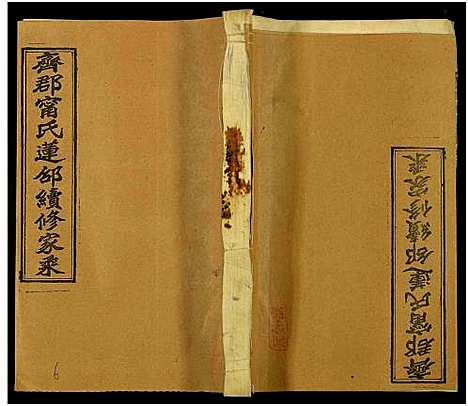 齊郡甯氏蓮邰續修家乘
齊郡甯氏蓮邰續修家乘
6